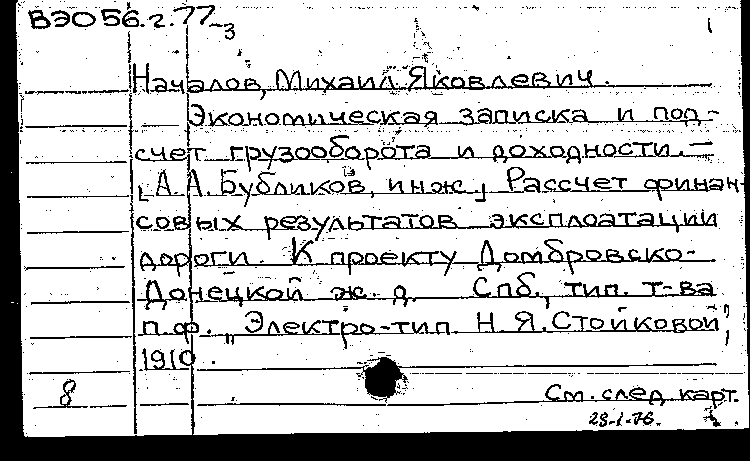 ВЭО 56.г.77-3
1
Началов, Михаил Яковлевич.
Экономическая записка и под-
счет грузооборота и доходности. —
[А.А. Бубликов, инж.] Рассчет финан-
совых результатов эксплоатации
дороги. К проекту Домбровско-
Донецкой ж. д. Спб., тип. т-ва
п.ф. „Электро-тип. Н.Я. Стойковой",
1910.
8
См. след. карт.
23-1-76.